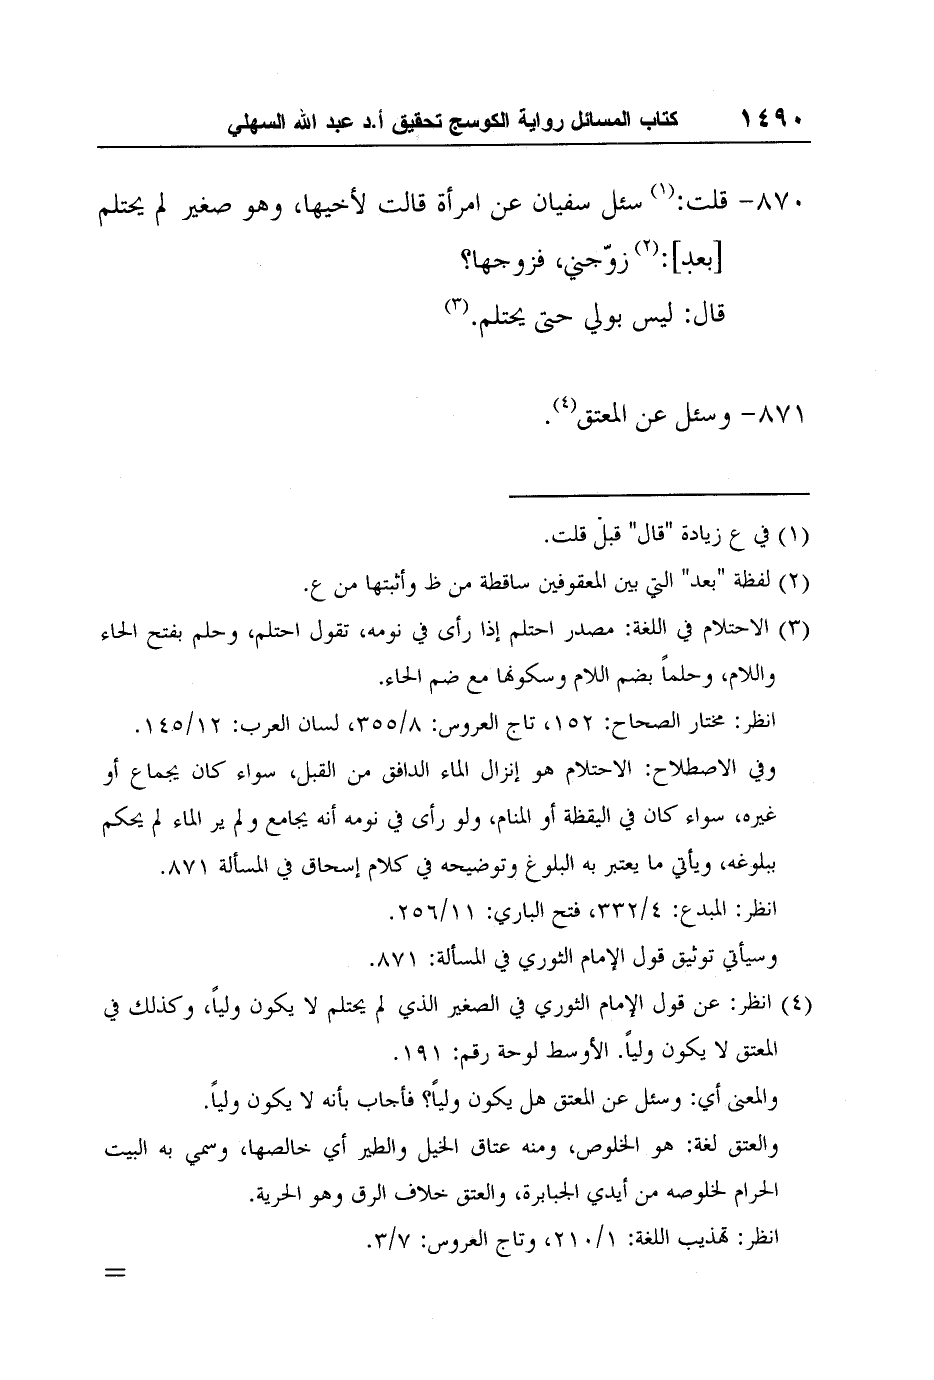 ١٤٩٠ كتاب المسائل رواية الكوسج تحقيق أ.د عبد الله السهلي
٨٧٠- قلت:(١) سئل سفيان عن امرأة قالت لأخيها، وهو صغير لم يحتلم
[بعد]:(٢) زوّجني، فزوجها؟
قال: ليس بولي حتى يحتلم.(٣)
٨٧١- وسئل عن المعتق(٤).
(١) في ع زيادة "قال" قبل قلت.
(٢) لفظة "بعد" التي بين المعقوفين ساقطة من ظ وأثبتها من ع.
(٣) الاحتلام في اللغة: مصدر احتلم إذا رأى في نومه، تقول احتلم، وحلم بفتح الحاء
واللام، وحلماً بضم اللام وسكونها مع ضم الحاء.
انظر: مختار الصحاح: ١٥٢، تاج العروس: ٣٥٥/٨، لسان العرب: ١٤٥/١٢.
وفي الاصطلاح: الاحتلام هو إنزال الماء الدافق من القبل، سواء كان بجماع أو
غيره، سواء كان في اليقظة أو المنام، ولو رأى في نومه أنه يجامع ولم ير الماء لم يحكم
ببلوغه، ويأتي ما يعتبر به البلوغ وتوضيحه في كلام إسحاق في المسألة ٨٧١.
انظر: المبدع: ٣٣٢/٤، فتح الباري: ٢٥٦/١١.
وسيأتي توثيق قول الإمام الثوري في المسألة: ٨٧١.
(٤) انظر: عن قول الإمام الثوري في الصغير الذي لم يحتلم لا يكون ولياً، وكذلك في
المعتق لا يكون ولياً. الأوسط لوحة رقم: ١٩١.
والمعنى أي: وسئل عن المعتق هل يكون ولياً؟ فأجاب بأنه لا يكون ولياً.
والعتق لغة: هو الخلوص، ومنه عتاق الخيل والطير أي خالصها، وسمي به البيت
الحرام لخلوصه من أيدي الجبابرة، والعتق خلاف الرق وهو الحرية.
انظر: تهذيب اللغة: ٢١٠/١، وتاج العروس: ٣/٧.
=